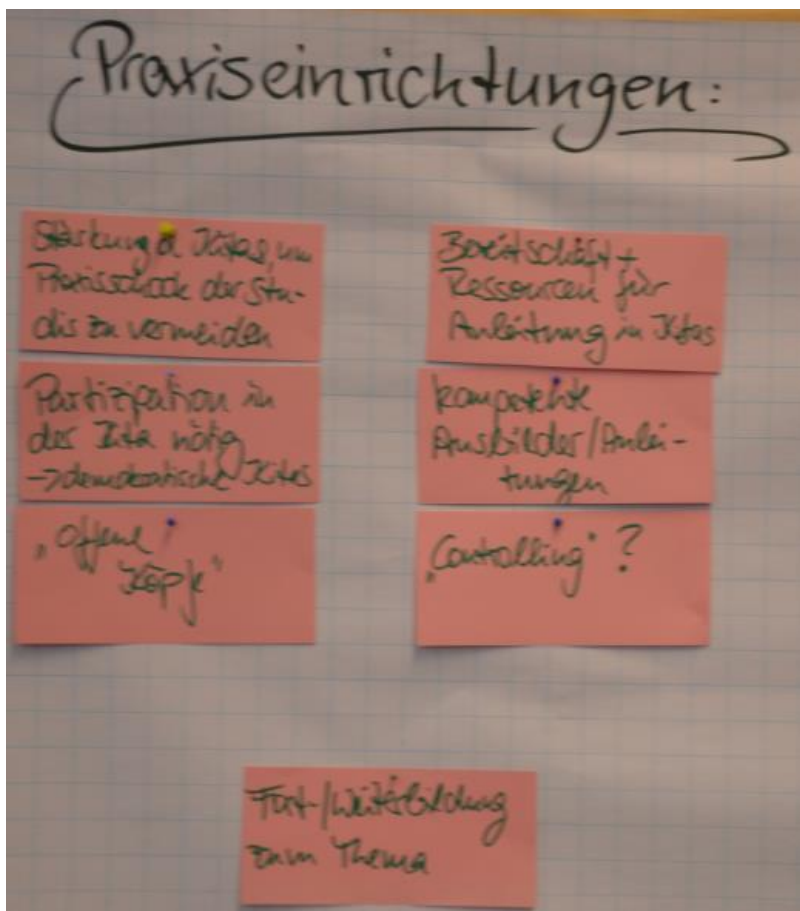 Praxiseinrichtungen:
Stärkung d. Kitas, um
Praxisschock der Stu-
dis zu vermeiden
Partizipation in
der Kita nötig
->demokratische Kitas
„Offene
Köpfe"
Bereitschaft +
Ressourcen für
Anleitung in Kitas
kompetente
Ausbilder/Anlei-
tungen
„Controlling" ?
Fort-/Weiterbildung
zum Thema